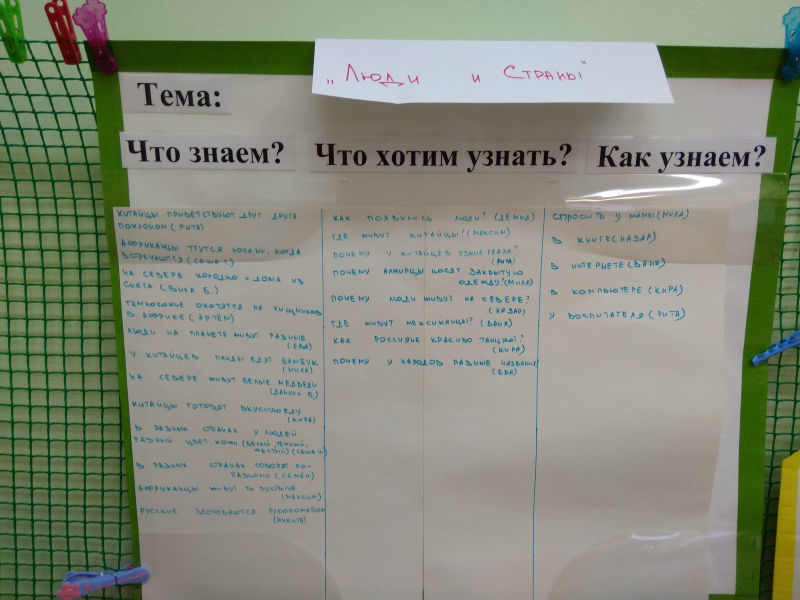 „Люди и Страны"
Тема:
Что знаем?
Что хотим узнать?
Как узнаем?
КИТАЙЦЫ ПРИВЕТСТВУЮТ ДРУГ ДРУГА
ПОКЛОНОМ (РИТА)
АФФРИКАНЦЫ ТРУТСЯ НОСАМИ, КОГДА
ВСТРЕЧАЮТСЯ (САША Т.)
НА СЕВЕРЕ ХОЛОДНО И ДОМА ИЗ
СНЕГА (ДИМА Б.)
ТЕМНОКОЖИЕ ОХОТЯТСЯ НА ХИЩНИКОВ
В АФФРИКЕ (АРТЁМ)
ЛЮДИ НА ПЛАНЕТЕ ЖИВУТ РАЗНЫЕ
(ЕВА)
У КИТАЙЦЕВ ПАНДЫ ЕДЯТ БАМБУК
(МИЛА)
НА СЕВЕРЕ ЖИВУТ БЕЛЫЕ МЕДВЕДИ
(ДАНИИЛ Б.)
КИТАЙЦЫ ГОТОВЯТ ВКУСНУЮ ЕДУ
(КИРА)
В РАЗНЫХ СТРАНАХ У ЛЮДЕЙ
РАЗНЫЙ ЦВЕТ КОЖИ (БЕЛЫЙ, ТЕМНЫЙ,
ЖЕЛТЫЙ) (САША Ш)
В РАЗНЫХ СТРАНАХ ГОВОРЯТ ПО-
РАЗНОМУ (СЕМЁН)
АФФРИКАНЦЫ ЖИВУТ В ПУСТЫНЕ
(МАКСИМ)
РУССКИЕ ЗДОРОВАЮТСЯ РУКОПОЖАТИЕМ
(НИКИТА)
КАК ПОЯВИЛИСЬ ЛЮДИ? (ДЕМИД)
ГДЕ ЖИВУТ КИТАЙЦЫ? (МАКСИМ)
ПОЧЕМУ У КИТАЙЦЕВ УЗКИЕ ГЛАЗА?
(РИТА)
ПОЧЕМУ АЛЖИРЦЫ НОСЯТ ЗАКРЫТУЮ
ОДЕЖДУ? (МИЛА)
ПОЧЕМУ ЛЮДИ ЖИВУТ НА СЕВЕРЕ?
(НАЗАР)
ГДЕ ЖИВУТ МЕКСИКАНЦЫ? (ВАНЯ)
КАК РОССИЯНЕ КРАСИВО ТАНЦУЮТ?
(КИРА)
ПОЧЕМУ У НАРОДОВ РАЗНЫЕ НАЗВАНИЯ?
(ЕВА)
СПРОСИТЬ У МАМЫ (МИЛА)
В КНИГЕ (НАЗАР)
В ИНТЕРНЕТЕ (ВАНЯ)
В КОМПЬЮТЕРЕ (КИРА)
У ВОСПИТАТЕЛЯ (РИТА)